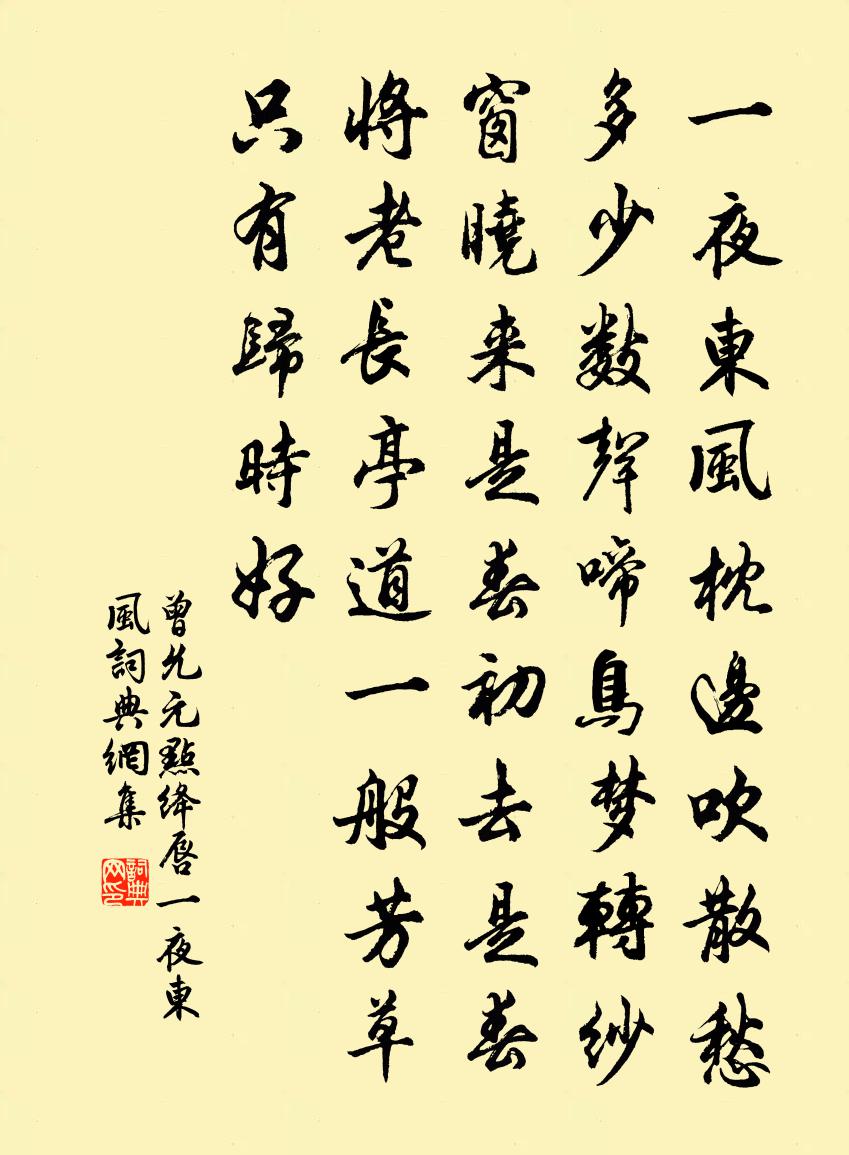 一夜東風枕邊吹散愁
多少數聲啼鳥梦轉紗
窗曉来是春初去是春
將老長亭道一般芳草
只有歸時好
曾允元點绛唇一夜東
風詞典網集
詞典网印